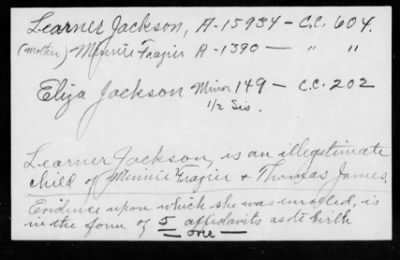 Learner Jackson, A-15934 - C.C. 604.
(mother) Minnie Frazier A-1390 — " "
Eliza Jackson Minor 149 - C.C. 202
1/2 Sis.
Learner Jackson, is an illegetimate
child of Minnie Frazier & Thomas James.
Evidence upon which she was enrolled, is
in the form of 5 affidavits as to birth
— one —